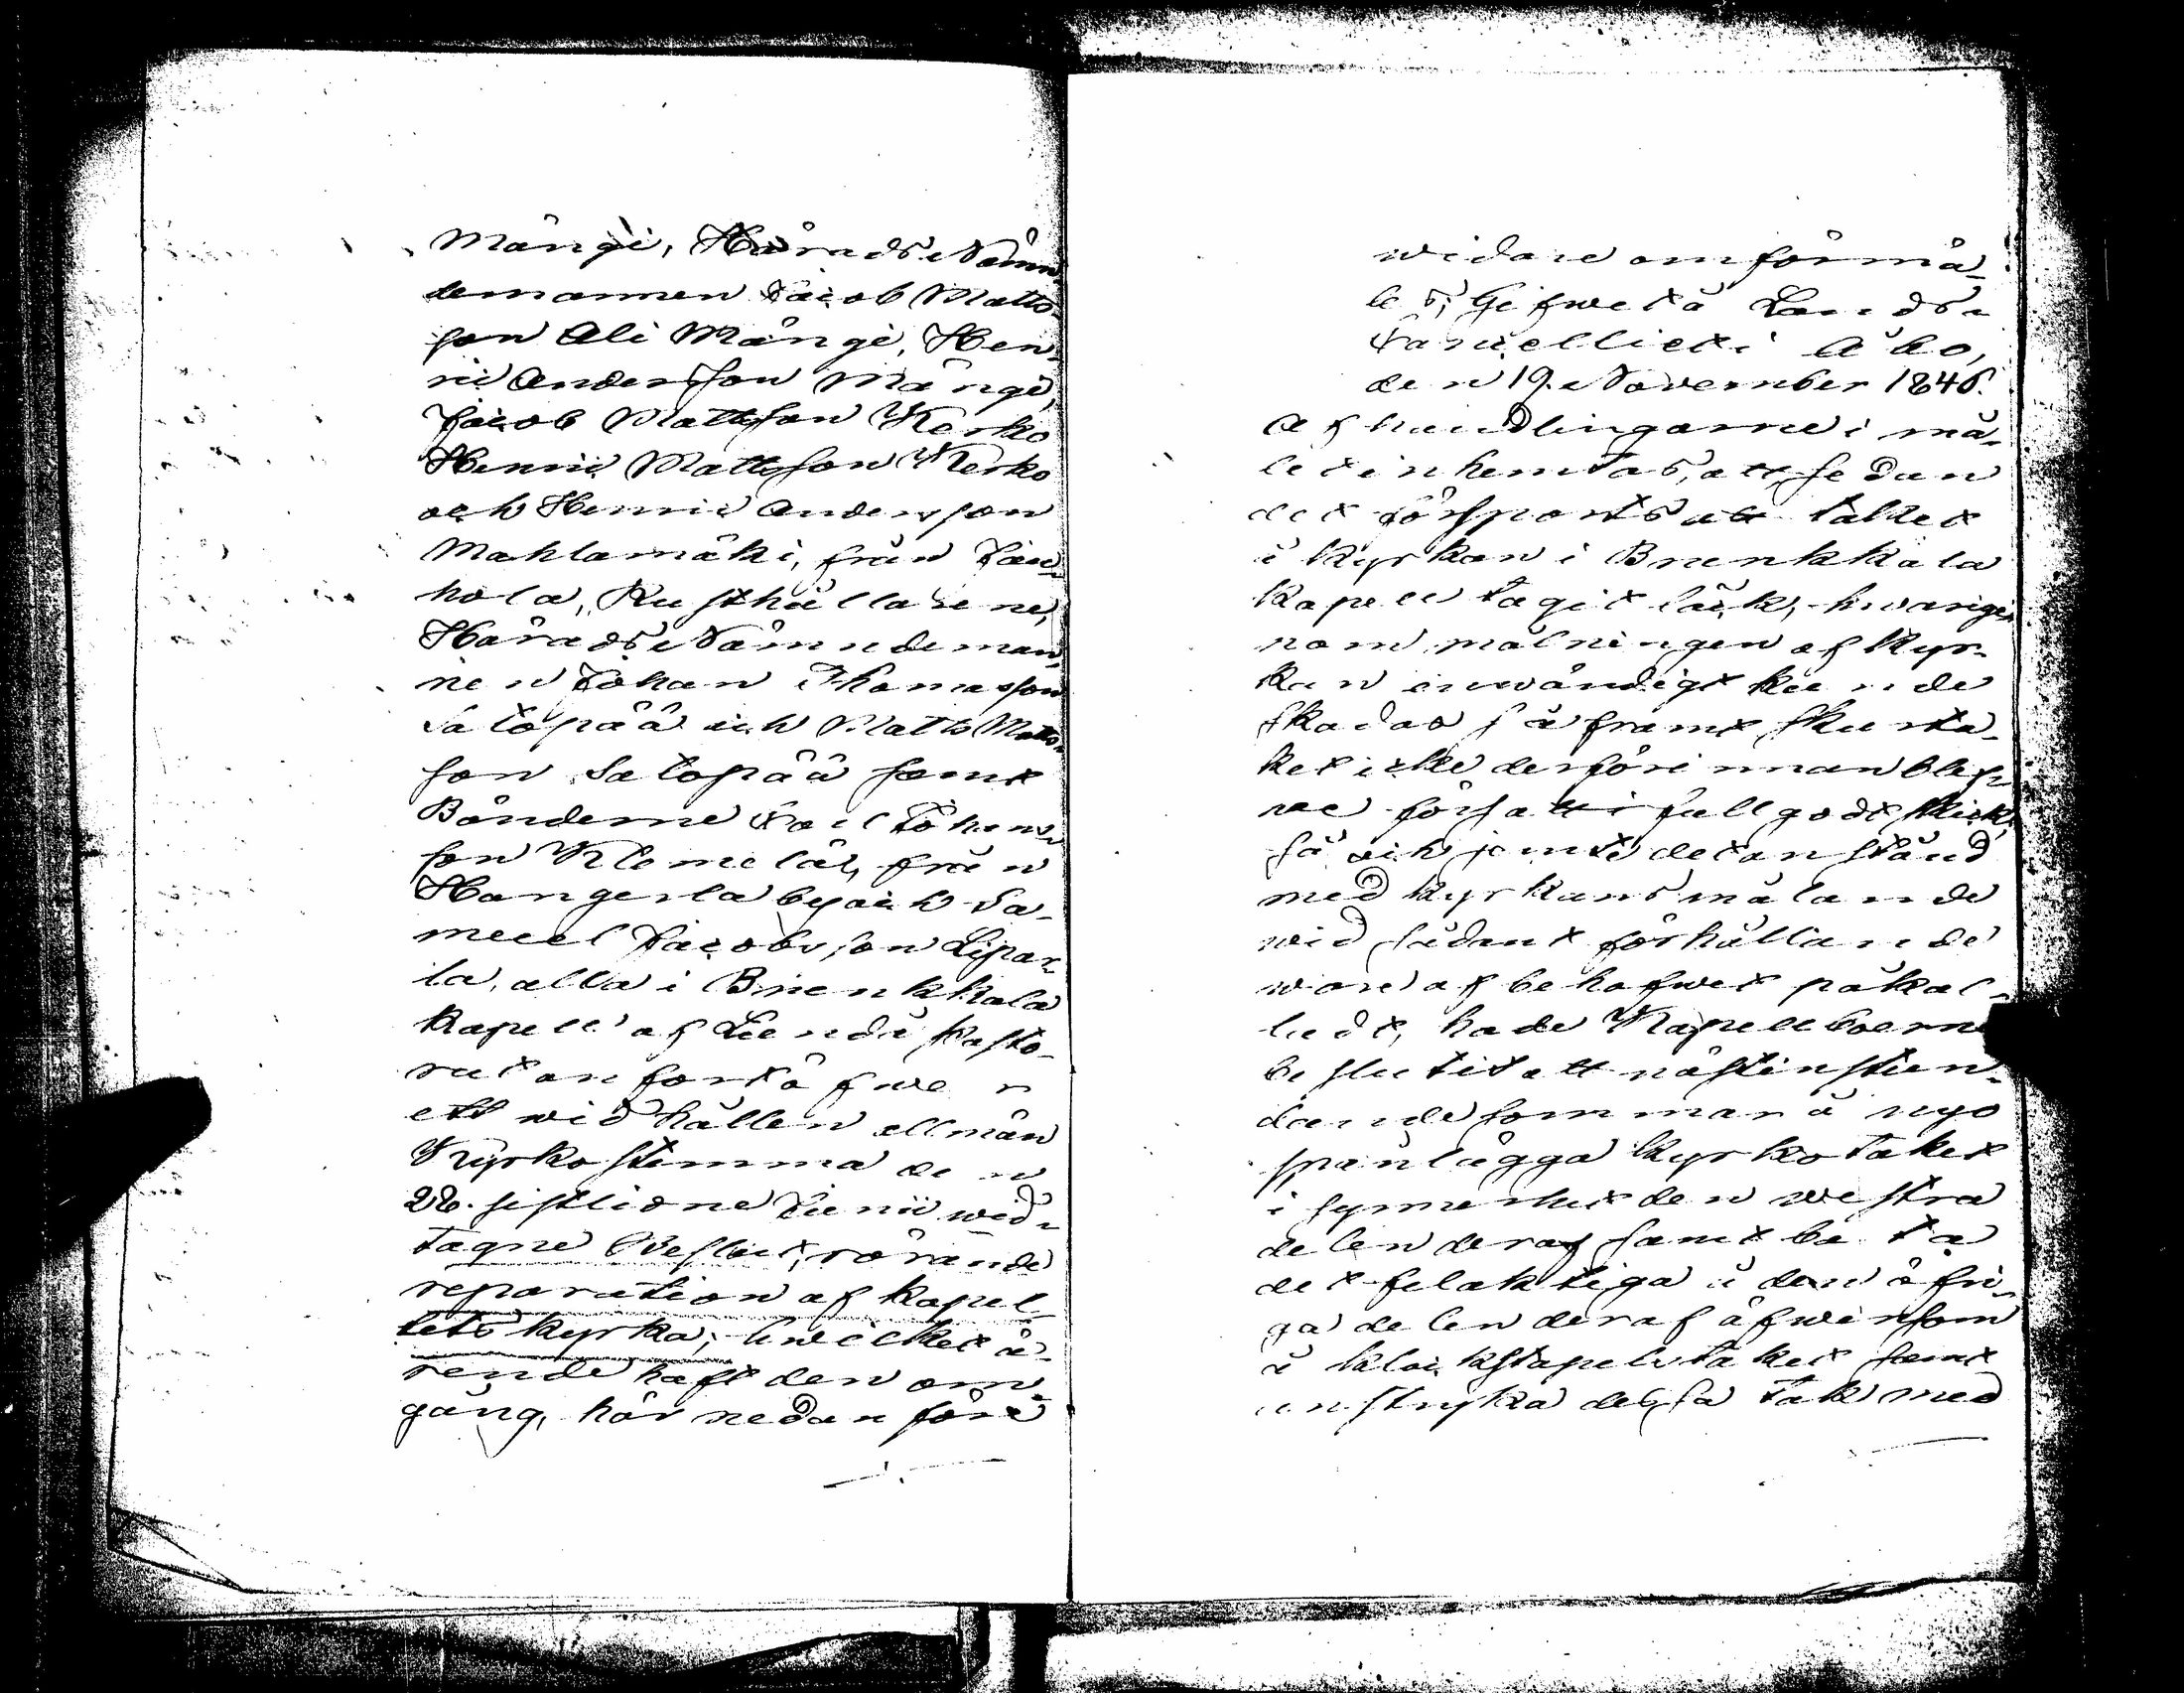 Mångi, HäradsNämn-
demannen Jacob Matts-
son Ali Mångi, Hen-
ric Andersson Mångi,
Jacob Mattsson Kerko
Henric Mattsson Kerko
och Henric Andersson
Mahlamäki, från Jän-
hola, Rusthållarene,
HäradsNämndeman-
nen Johan Thomasson
Satopää och Matts Matts-
son Satopää samt
Bönderne Carl Johans-
son Klemelä, från
Hangersla by och Sa-
muel Jacobsson Lipar-
la, alla i Brunkkala
Kapell af Lundo Pasto-
rat anfört öfwer
ett wid hållen allmän
Kyrkostemma den
28. sistlidne Junii wid-
tagne Beslut, rörande
reparation af Kapel-
lets kyrka; hwilket ä-
rende haft den om-
gång, här nedanföre
widare omförmä-
les; Gifwet å Lands-
Cancelliet i Åbo,
den 19. November 1846.
Af handlingarne i må-
let inhemtas, att sedan
det försports att taket
å kyrkan i Brunkkala
Kapell tagit läck, hwarige-
nom målningen af Kyr-
kan inwändigt kunde
skadas så framt sku ta-
ket icke derförinnan blef-
we försatt i fullgodt skick,
så och jemte det anstånd
med kyrkans målande
wid sådant förhållande
wore af behofwet påkal-
ladt, hade Kapellboerne
beslutit att nästinstun-
dande sommar å nyo
spånlägga Kyrkotaket
i synnerhet den westra
delen deraf samt bota
det felaktiga å den öfri-
ga delen deraf äfwensom
å klockstapelstaket samt
anstryka dessa tak med